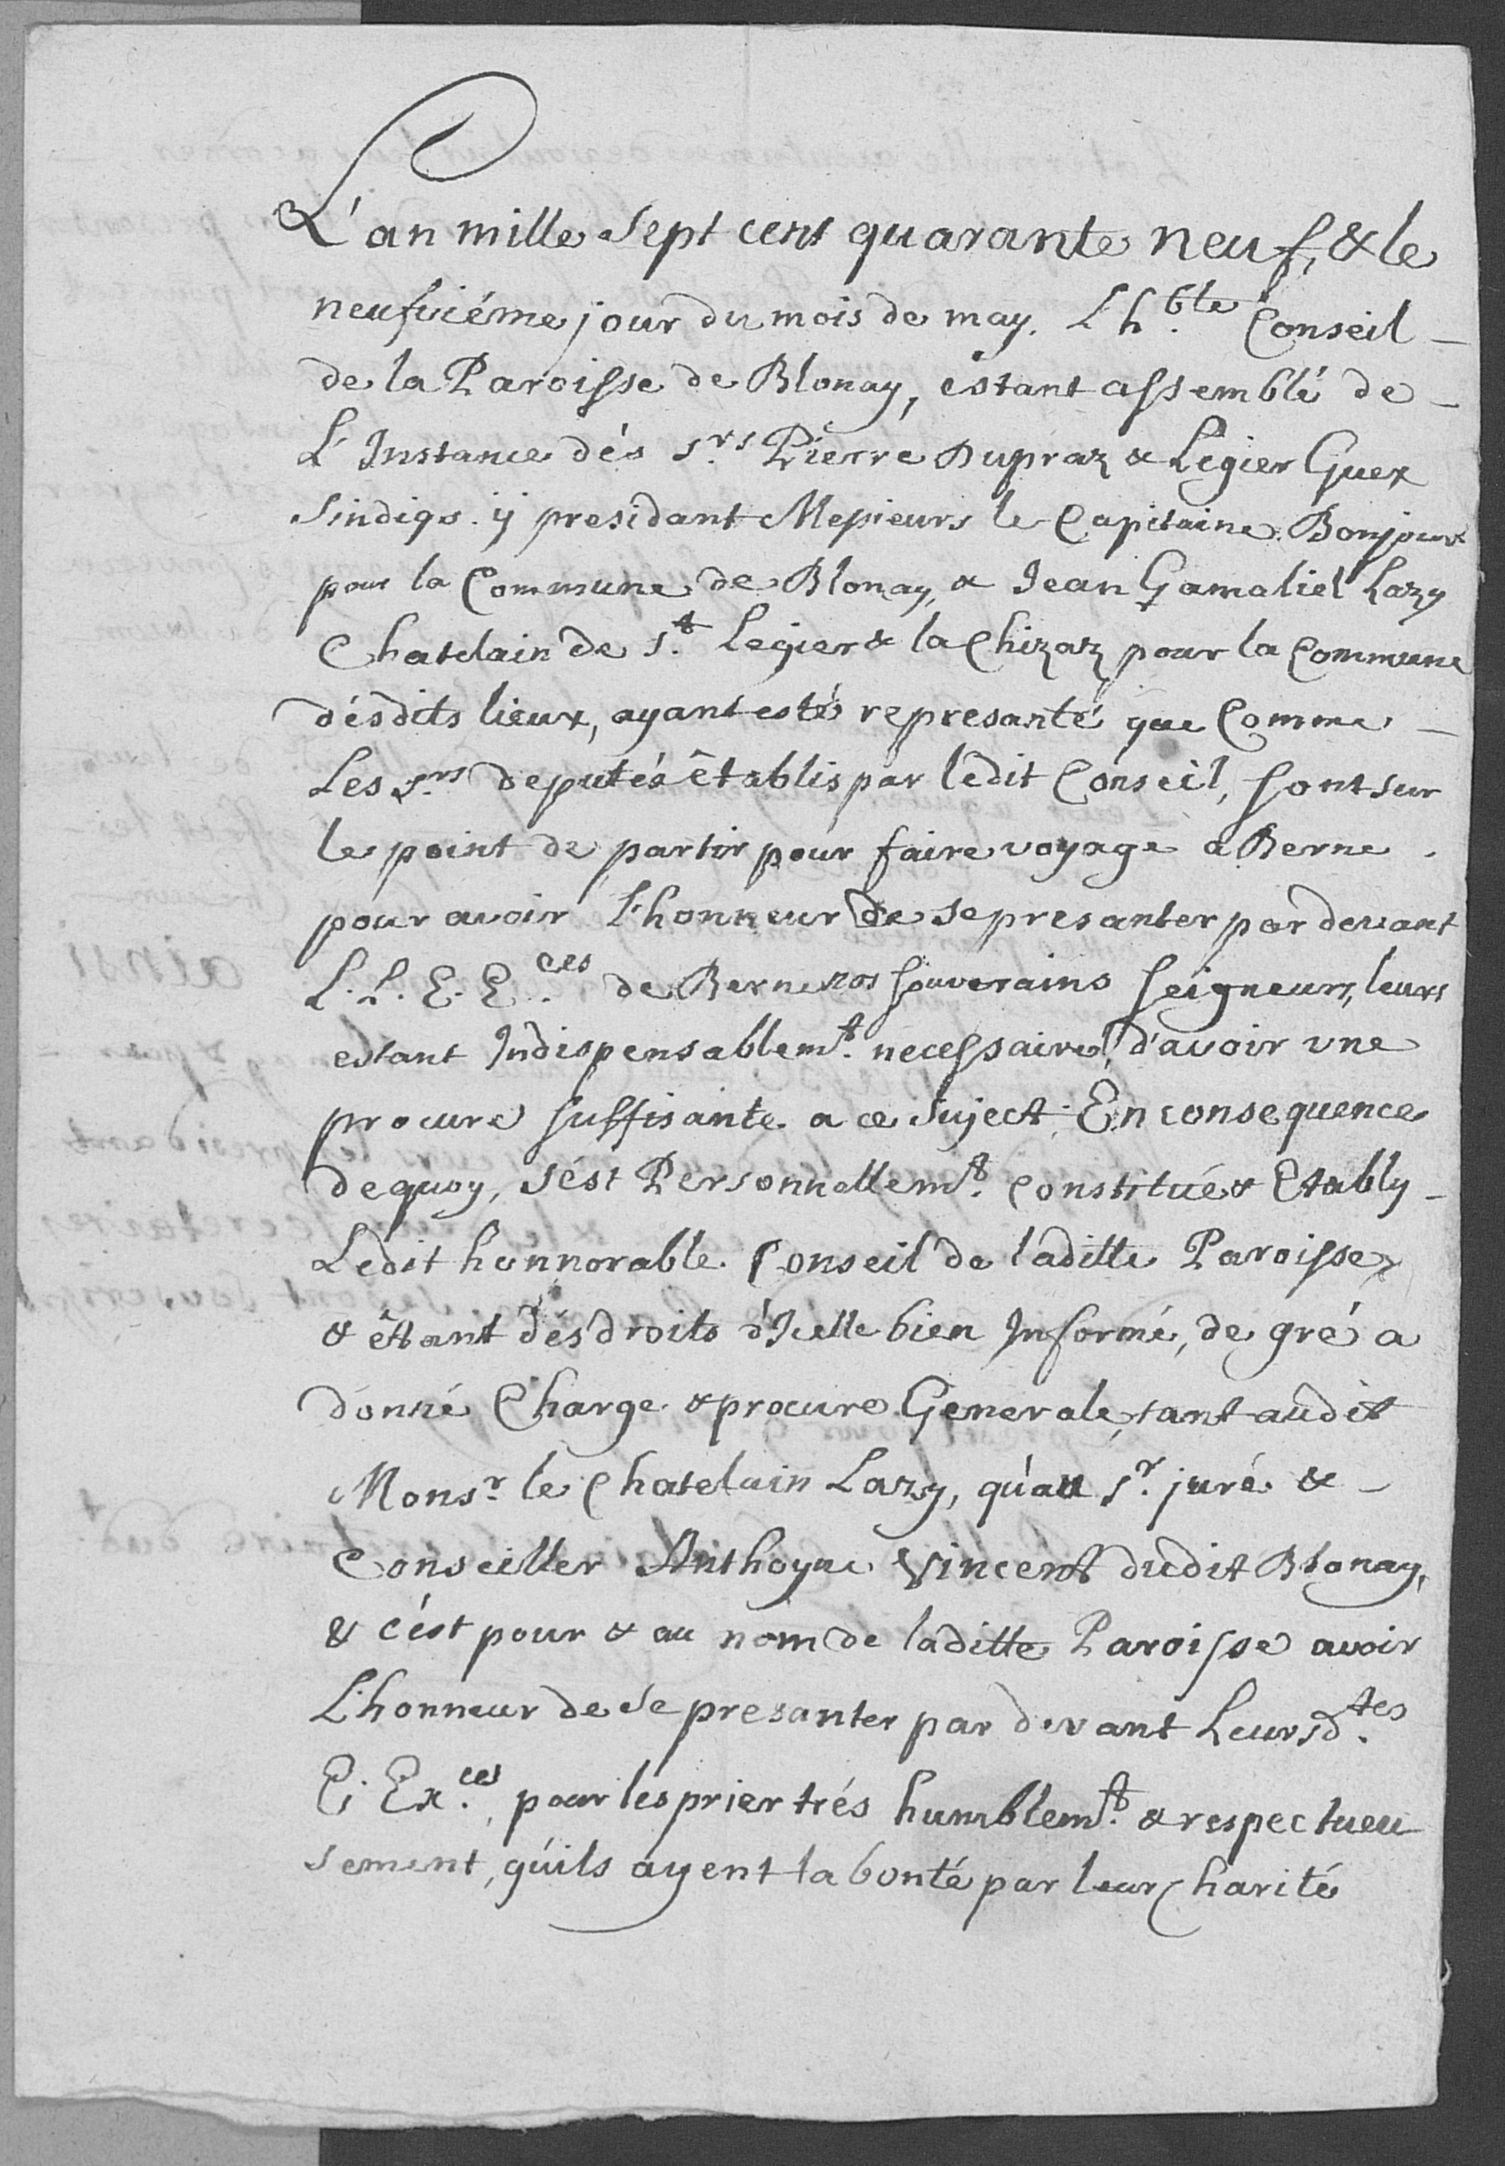 L'an mille sept cent quarante neuf, & le
neufviéme jour du mois de may. L'h.ble Conseil
de la Paroisse de Blonay, estant assemblé de
L'Instance dés S.rs Pierre Dupraz & Légier Guex
Sindiqs. ÿ presidant Messieurs le Capitaine Bonjour
pour la Commune de Blonay, & Jean Gamaliel Lazy
Chatelain de S.t Legier & la Chizaz pour la Commune
désdits lieux, ayant esté represanté que Comme
Les S.rs deputés êtablis par ledit Conseil, sont sur
le point de partir pour faire voyage a Berne.
pour avoir l'honneur de se presanter par devant
L. L. E. E.ces de Berne nos souverains seigneurs, leurs
estant Indispensablem.t necessaire, d'avoir une
procure suffisante a ce suject. En consequence
dequoy, s'ést Personnellem.t constitué & Etably
Ledit honnorable Conseil de laditte Paroisse,
& êttant dés droits d'Icelle bien Informé, de gré a
donné Charge & procure Generale, tant audit
Mons.r le Chatelain Lazy, qu'au S.r juré &
Conseiller Anthoyne Vincent dudit Blonay,
& c'ést pour & au nom de laditte Paroisse avoir
L'honneur de se presanter par devant Leursd.tes
E. Ex.ces, pour les prier trés humblem.t & respectueu
sement, qu'ils ayent la bonté par leur Charité